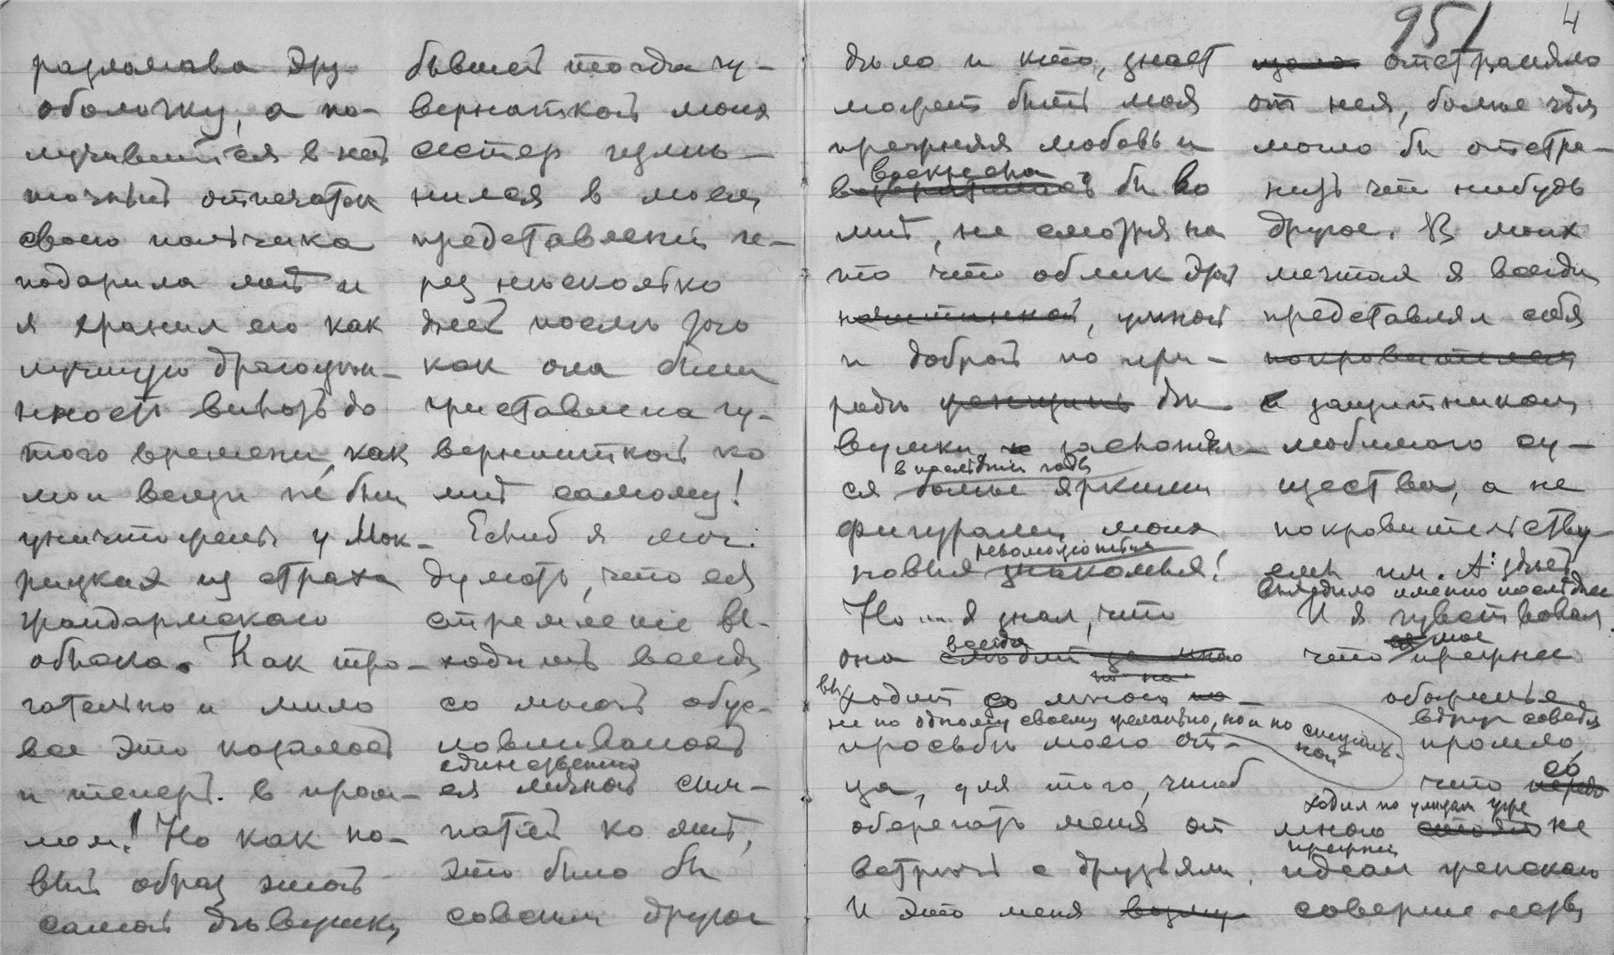 разломава дру
оболочку, а по-
лучившiйся в ней
точный отпечаток
своего пальчика
подарила мнѣ и
я хранил его как
лучшую драгоцѣн-
ность вплоть до
того времени, как
мои вещи не были
уничтожены у Мок-
рицкая из страха
жандармскаго
обыска. Как тро-
гательно и мило
все это казалось
и теперь в прош-
лом! Но как но-
вый образ этой
самой дѣвушки,
бывшей тогда гу-
вернанткой моих
сестер измѣ-
нился в моем
представленiи че-
рез нѣсколько
дней послѣ того
как она была
приставлена гу-
вернанткой ко
мнѣ самому!
Если б я мог
думать, что ея
стремленiе вы-
ходить всегда
со мной обус-
ловливалось
единственно
ея личной сим-
патiей ко мнѣ,
это было бы
совсем другое
951 4
дѣло и кто, знает
может быть моя
прежняя любовь и
воскресла
возвратилась бы во
мнѣ, не смотря на
то что облик этой
умной
и доброй по при-
родѣ женщины дѣ-
вушки заслонял-
в послѣднiй год
ся болѣе яркими
фигурами моих
революцiонных
новых знакомых!
Но ... я знал, что
всегда
она со мною
вы
ходит со мною по
не по одному своему желанiю, но и по спецiаль-
ной
просьбѣ моего от-
ца, для того, чтоб
оберегать меня от
встрѣч с друзьями.
И это меня
отстраняло
от нея, болѣе чѣм
могло бы отстра-
нить что нибудь
другое. В моих
мечтах я всегда
представлял себя
покровителем
и защитником
любимаго су-
щества, а не
покровительству-
емым им. А здѣсь
выходило именно послѣднее
И я чувствовал,
мое
что прежнее
обожанье
вдруг совсѣм
прошло,
что со
ходил по улицам уже
мною стоял не
прежнiй
идеал женскаго
совершенства